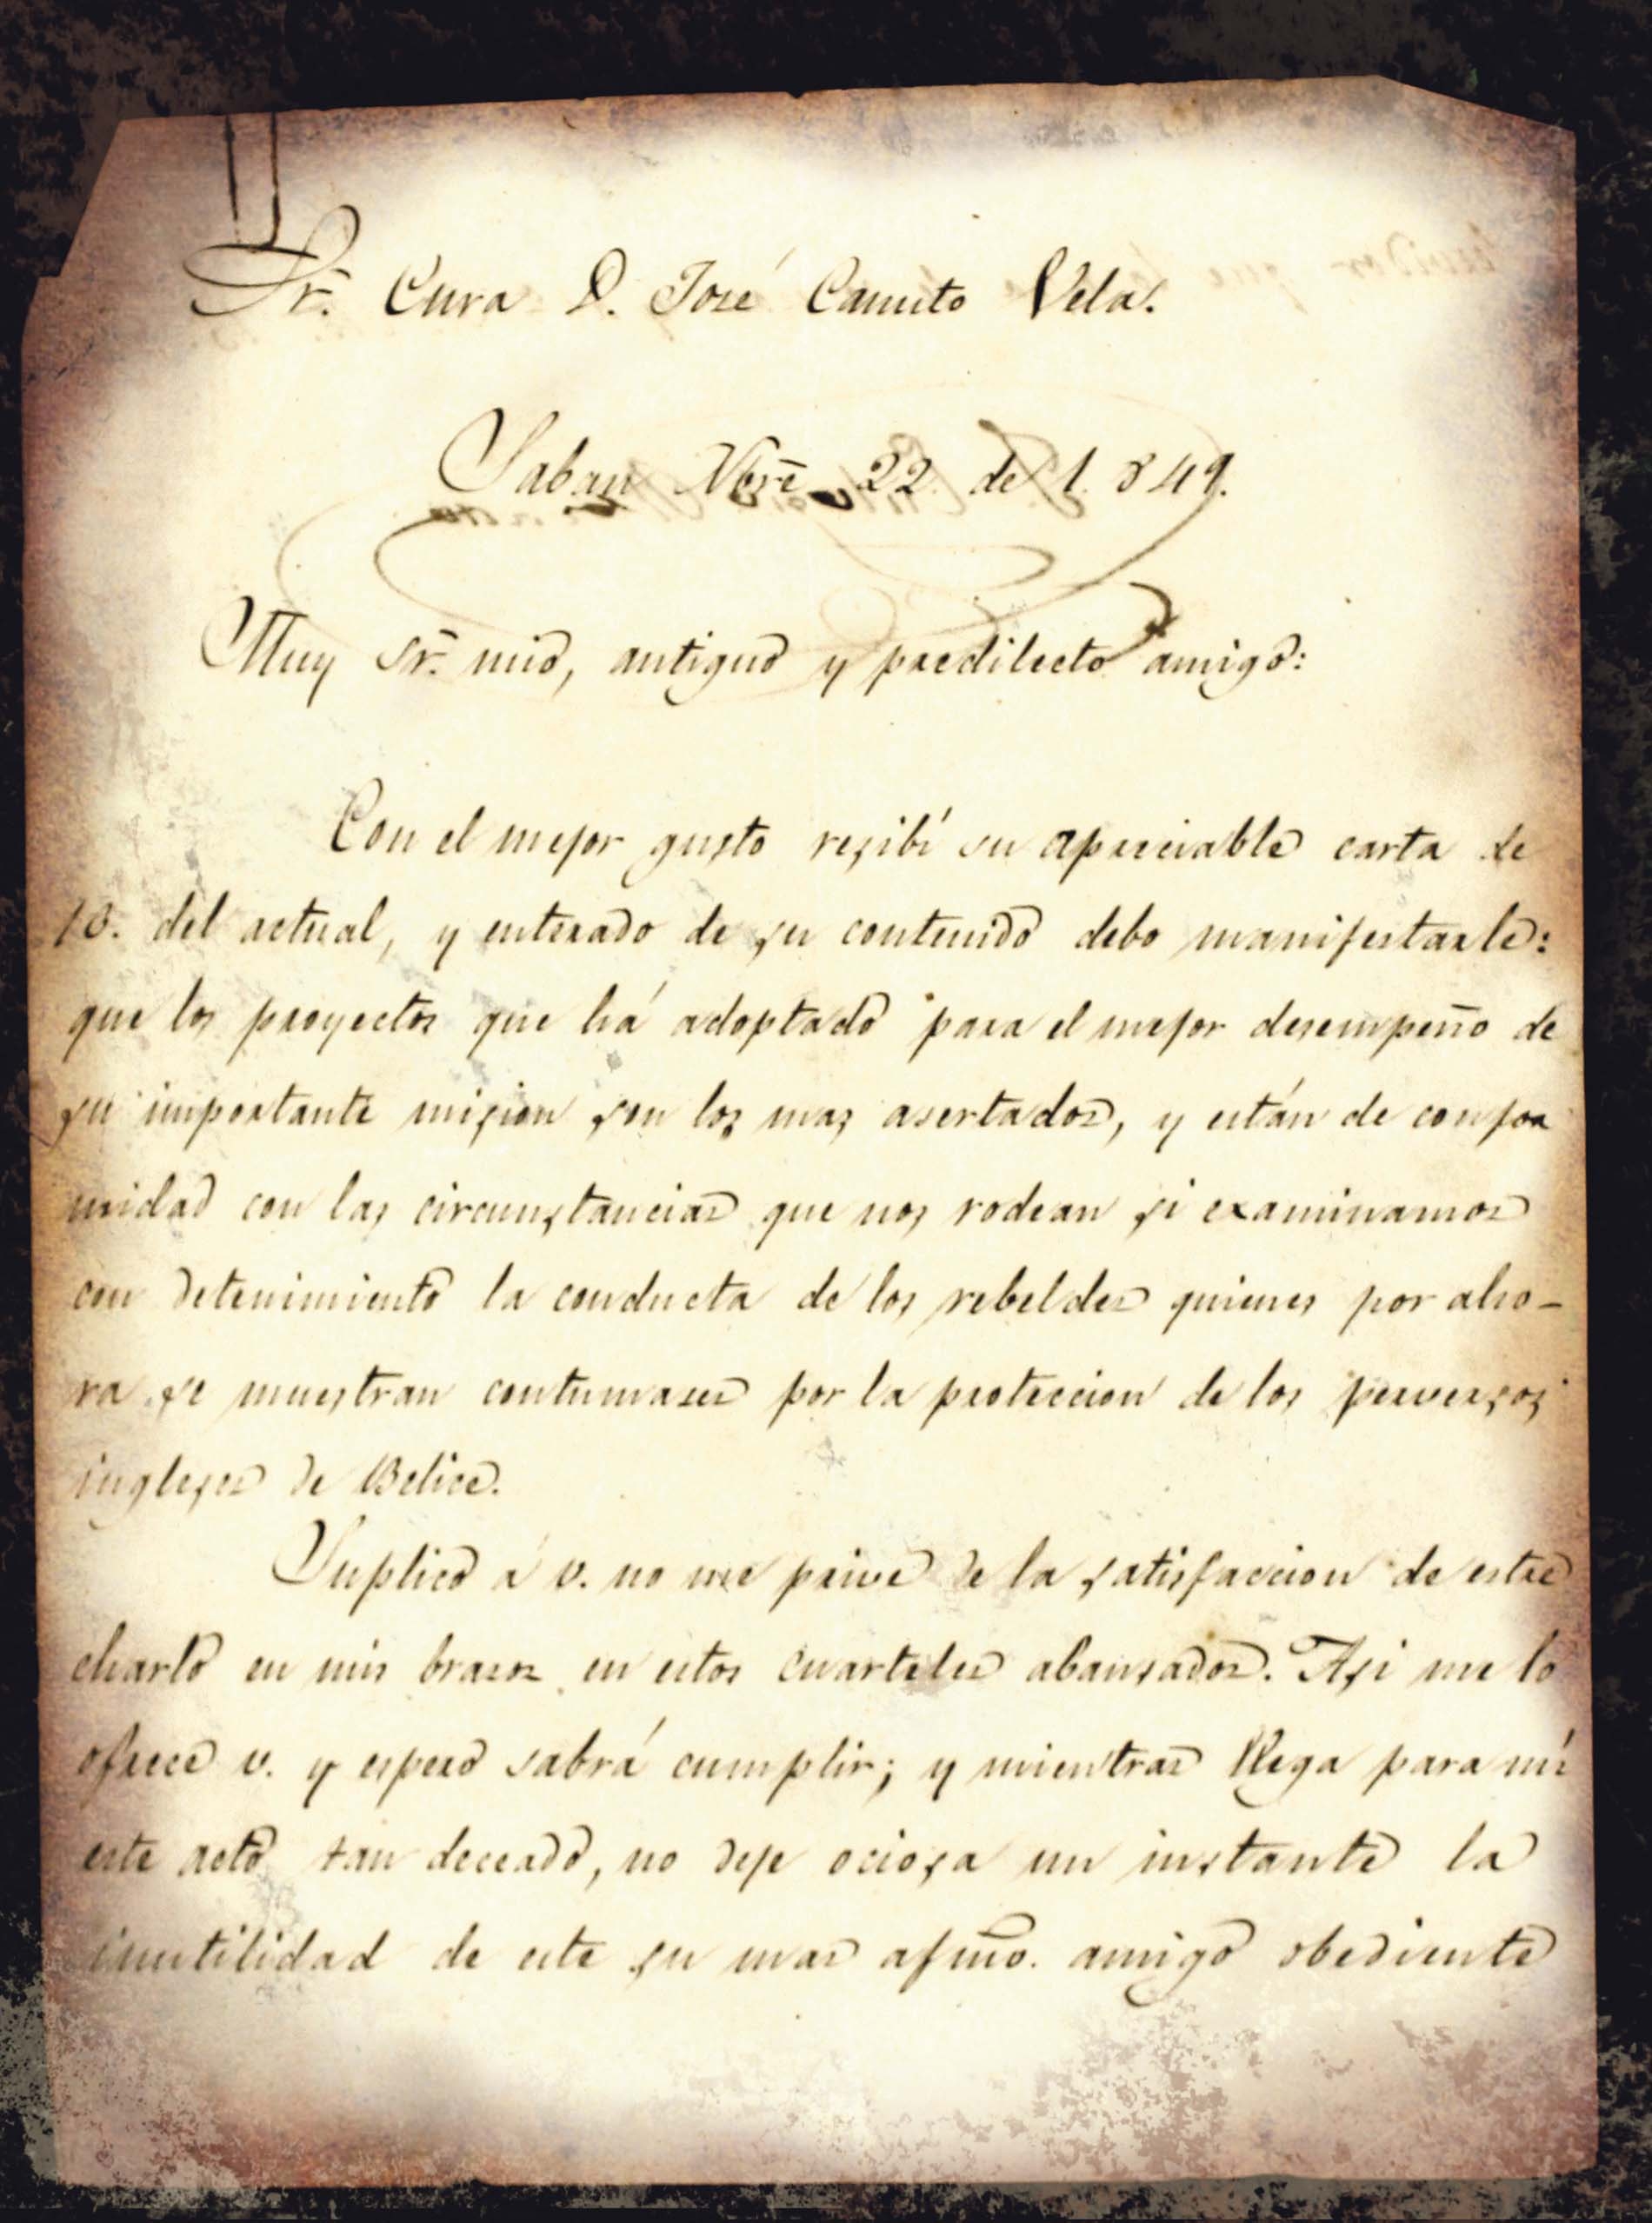 Sr. Cura D. José Canuto Vela.
Saban Nbre 22. de 1.849.
Muy Sr. mio, antiguo y predilecto amigo:
Con el mejor gusto resibí su apreciable carta de
del actual, y enterado de su contenido debo manifestarle:
que los proyectos que há adoptado para el mejor desempeño de
su importante mision son los mas asertados, y están de confor
midad con las circunstancias que nos rodean si examinamos
con detenimiento la conducta de los rebeldes quienes por aho-
ra se muestran contumases por la proteccion de los perversos
ingleses de Belice.
Suplico á v. no me prive de la satisfaccion de estre
charlo en mis brasos en estos cuarteles abansados. Asi me lo
ofrece v. y espero sabrá cumplir; y mientras llega para mí
este acto tan deceado, no deje ociosa un instante la
inutilidad de este su mas afmo. amigo obediente